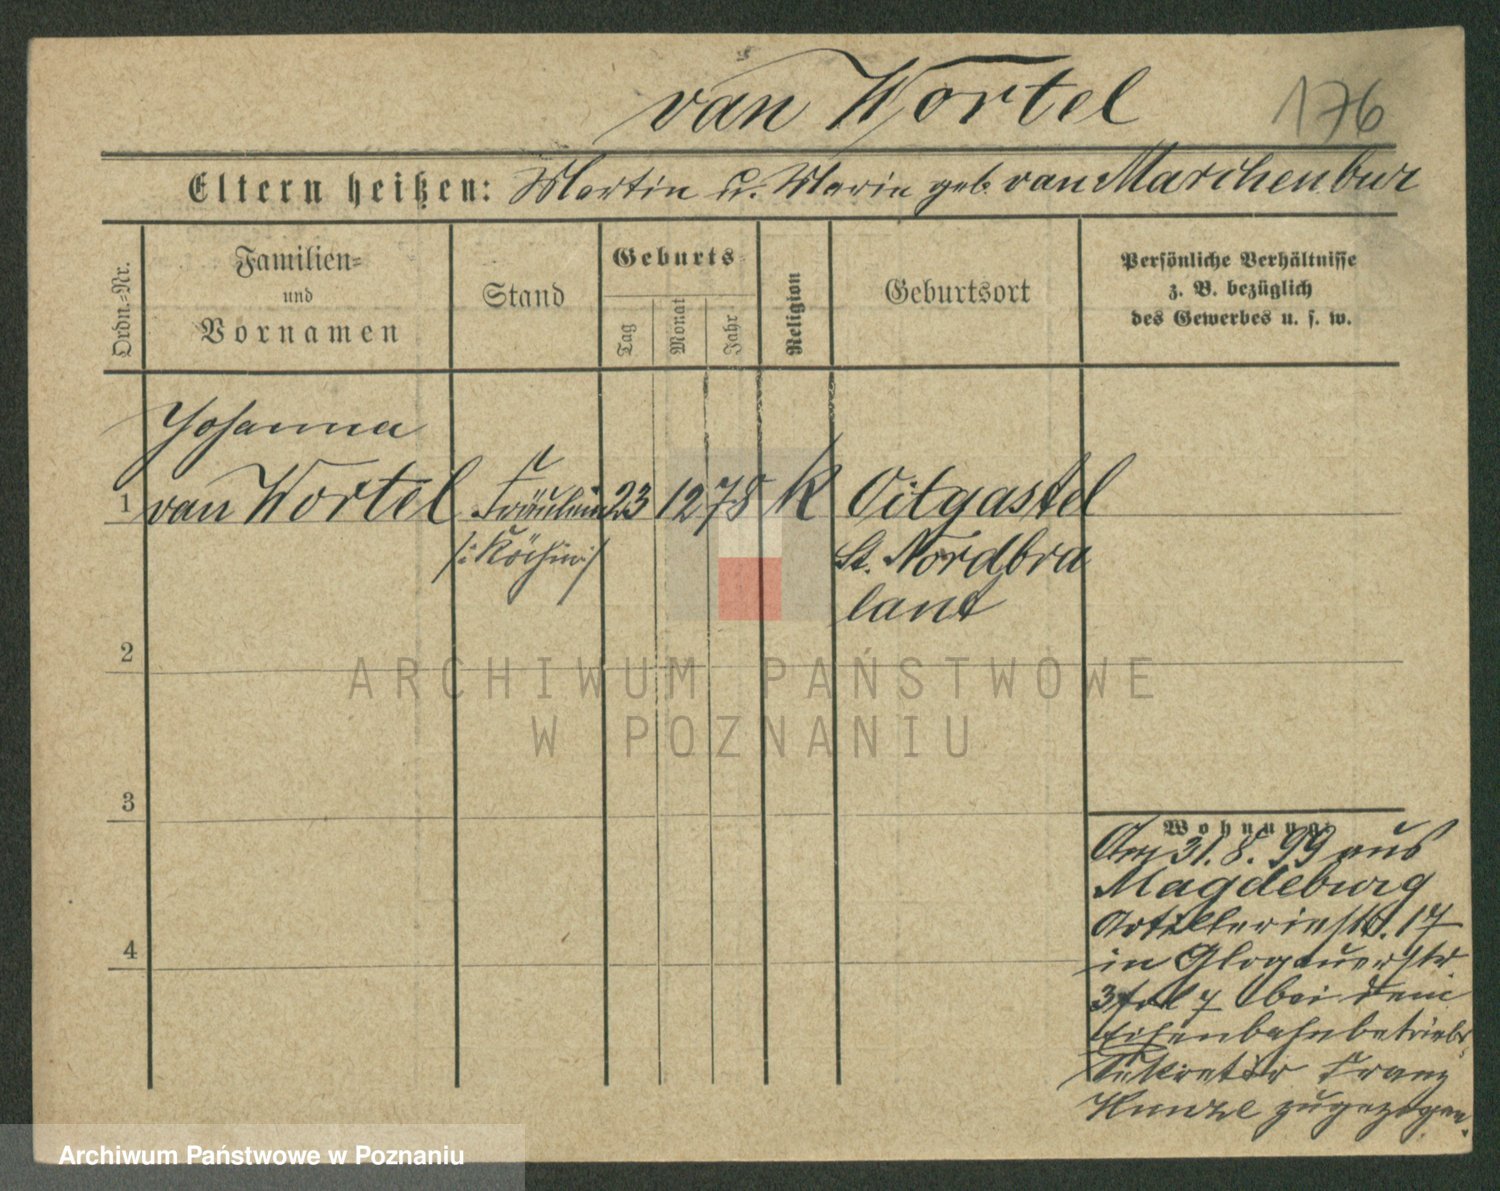 van Wortel
176
Eltern heißen: Martin u. Marie geb. van Marchenbur
Ordn.=Nr.
Familien=
und
Vornamen
Stand
Geburts=
Tag
Monat
Jahr
Religion
Geburtsort
Persönliche Verhältnisse
z. B. bezüglich
des Gewerbes u. s. w.
Johanna
1 van Wortel Fräulein 23 12 78 K Oitgastel
/: Köchin :/ St. Nordbra
lant
2
3
4
Wohnung:
Am 31. 8. 99 aus
Magdeburg
Artilleriestr. 17
in Glogauerstr
3 bei dem
Eisenbahnbetriebs
Sekretär Franz
Kunzel zugezogen.
ARCHIWUM PAŃSTWOWE
W POZNANIU
Archiwum Państwowe w Poznaniu